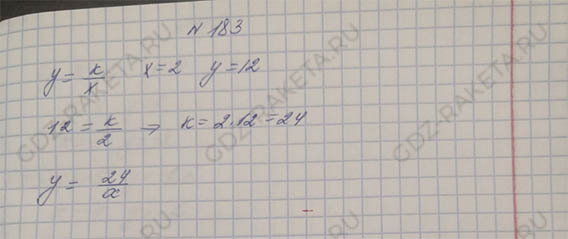 № 183
y = k/x   x = 2   y = 12
12 = k/2 → k = 2·12 = 24
y = 24/x
GDZ-RAKETA.RU
GDZ-RAKETA.RU
GDZ-RAKETA.RU